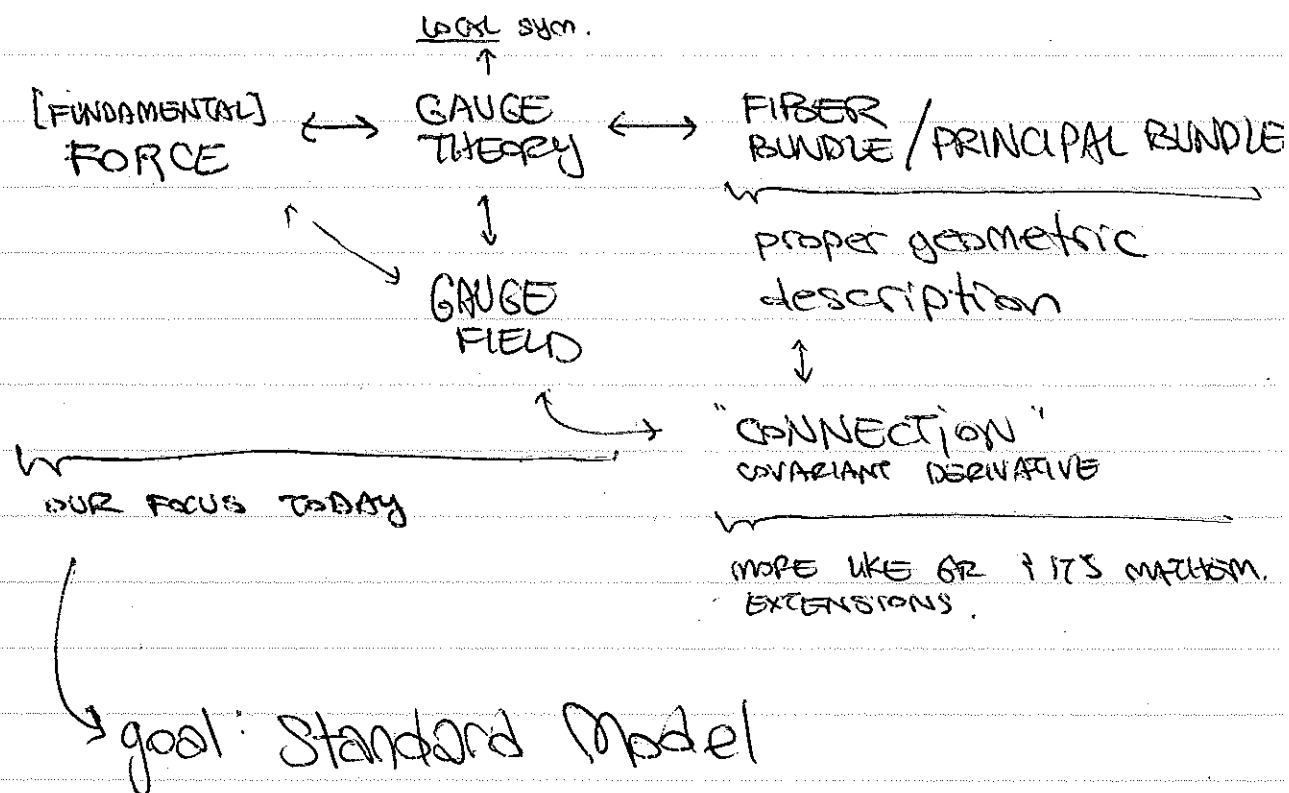 LOCAL sym.
[FUNDAMENTAL] FORCE ↔ GAUGE THEORY ↔ FIBER BUNDLE / PRINCIPAL BUNDLE
proper geometric
description
GAUGE
FIELD
"CONNECTION"
COVARIANT DERIVATIVE
OUR FOCUS TODAY
MORE LIKE GR & IT'S MATHEM.
EXTENSIONS.
goal: Standard Model